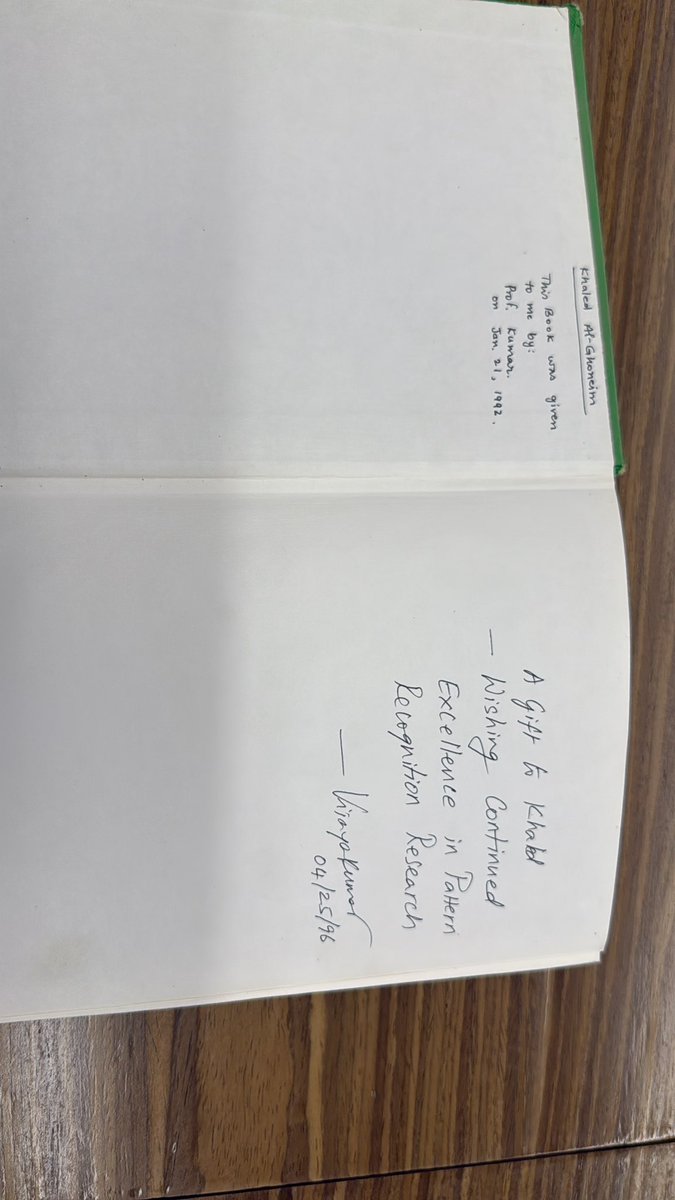 Khaled Al-Ghoneim
This Book was given
to me by:
Prof. Kumar.
on Jan. 21, 1992.
A Gift to Khaled
— Wishing Continued
Excellence in Pattern
Recognition Research
— Vijayakumar
04/25/96